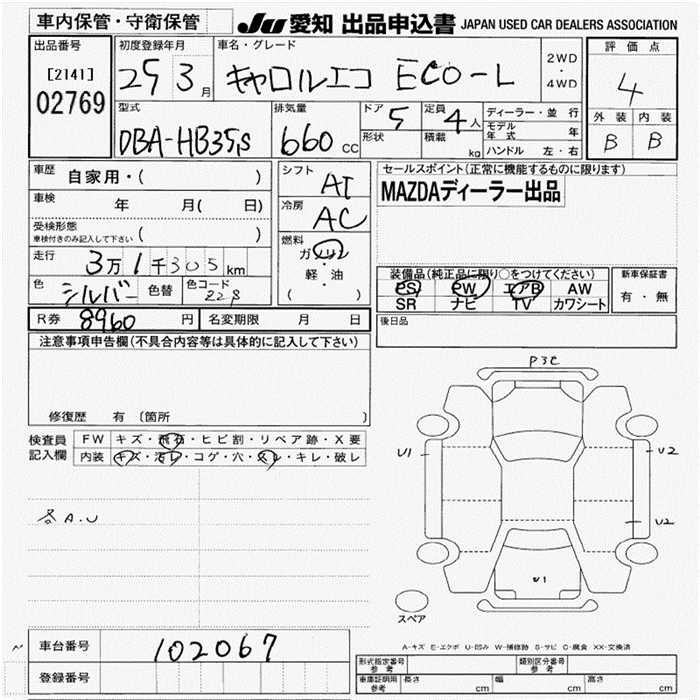 車内保管・守衛保管
JU 愛知 出品申込書 JAPAN USED CAR DEALERS ASSOCIATION
出品番号
[2141]
02769
初度登録年月
25 3月
車名・グレード
キャロルエコ ECO-L
2WD
・
4WD
評価点
4
外装 内装
B B
型式
DBA-HB35S
排気量
660 CC
ドア 5
形状
定員 4人
積載 kg
ディーラー・並行
モデル年式 年
ハンドル 左・右
車歴 自家用・( )
車検 年 月( 日)
受検形態 ( )
車検付きのみ記入して下さい
走行 3万1千305km
色 シルバー 色替 色コード Z2S
シフト AT
冷房 AC
燃料
ガソリン
・
軽・油
( )
セールスポイント(正常に機能するものに限ります)
MAZDAディーラー出品
装備品(純正品に限り○をつけてください)
PS PW エアB AW
SR ナビ TV カワシート
新車保証書
有・無
R券 8960 円 名変期限 月 日
後日品
注意事項申告欄(不具合内容等は具体的に記入して下さい)
修復歴 有〔箇所 〕
検査員記入欄
FW キズ・飛石・ヒビ割・リペア跡・X要
内装 キズ・汚レ・コゲ・穴・スレ・キレ・破レ
各A.U
P3C
U1
U2
U2
U1
スペア
A-キズ E-エクボ U-凹み W-補修跡 S-サビ C-腐食 XX-交換済
車台番号 102067
登録番号
形式指定番号参考
類別区分番号参考
車庫証明用参考 長さ cm 幅 cm 高さ cm